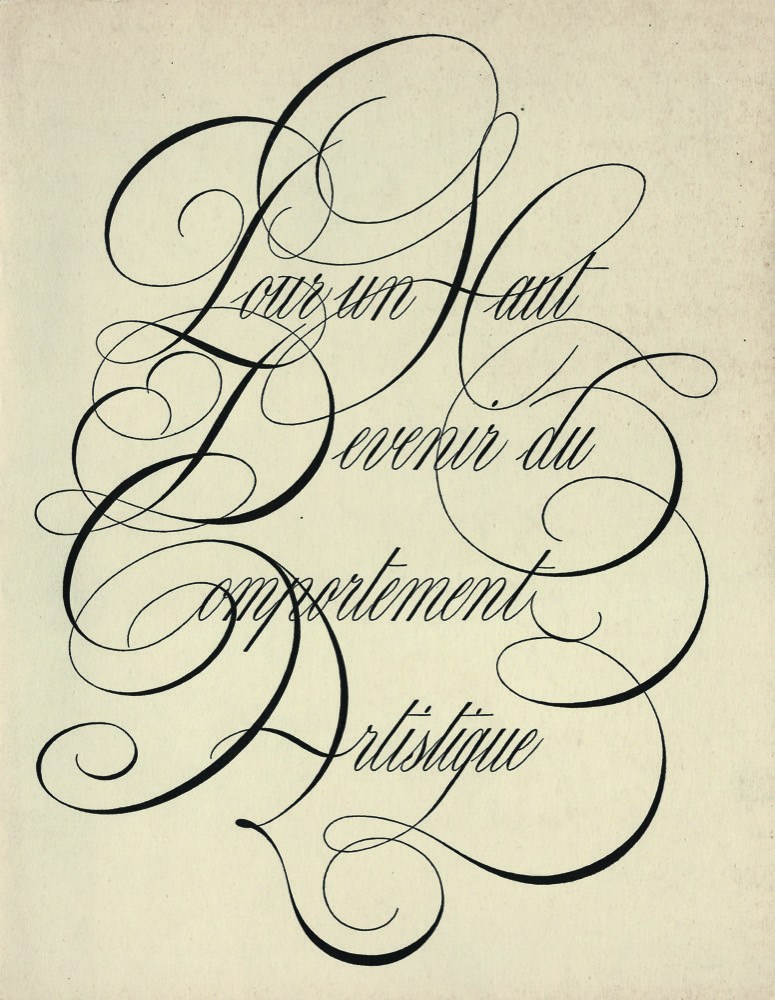 Pour un Haut
Devenir du
Comportement
Artistique